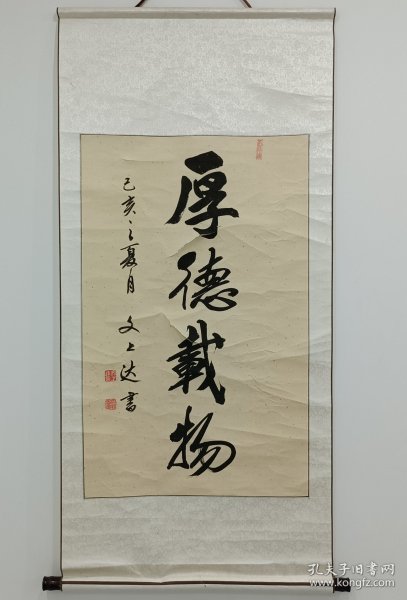 厚德載物
己亥之夏月 文上达书
孔夫子旧书网
www.kongfz.com